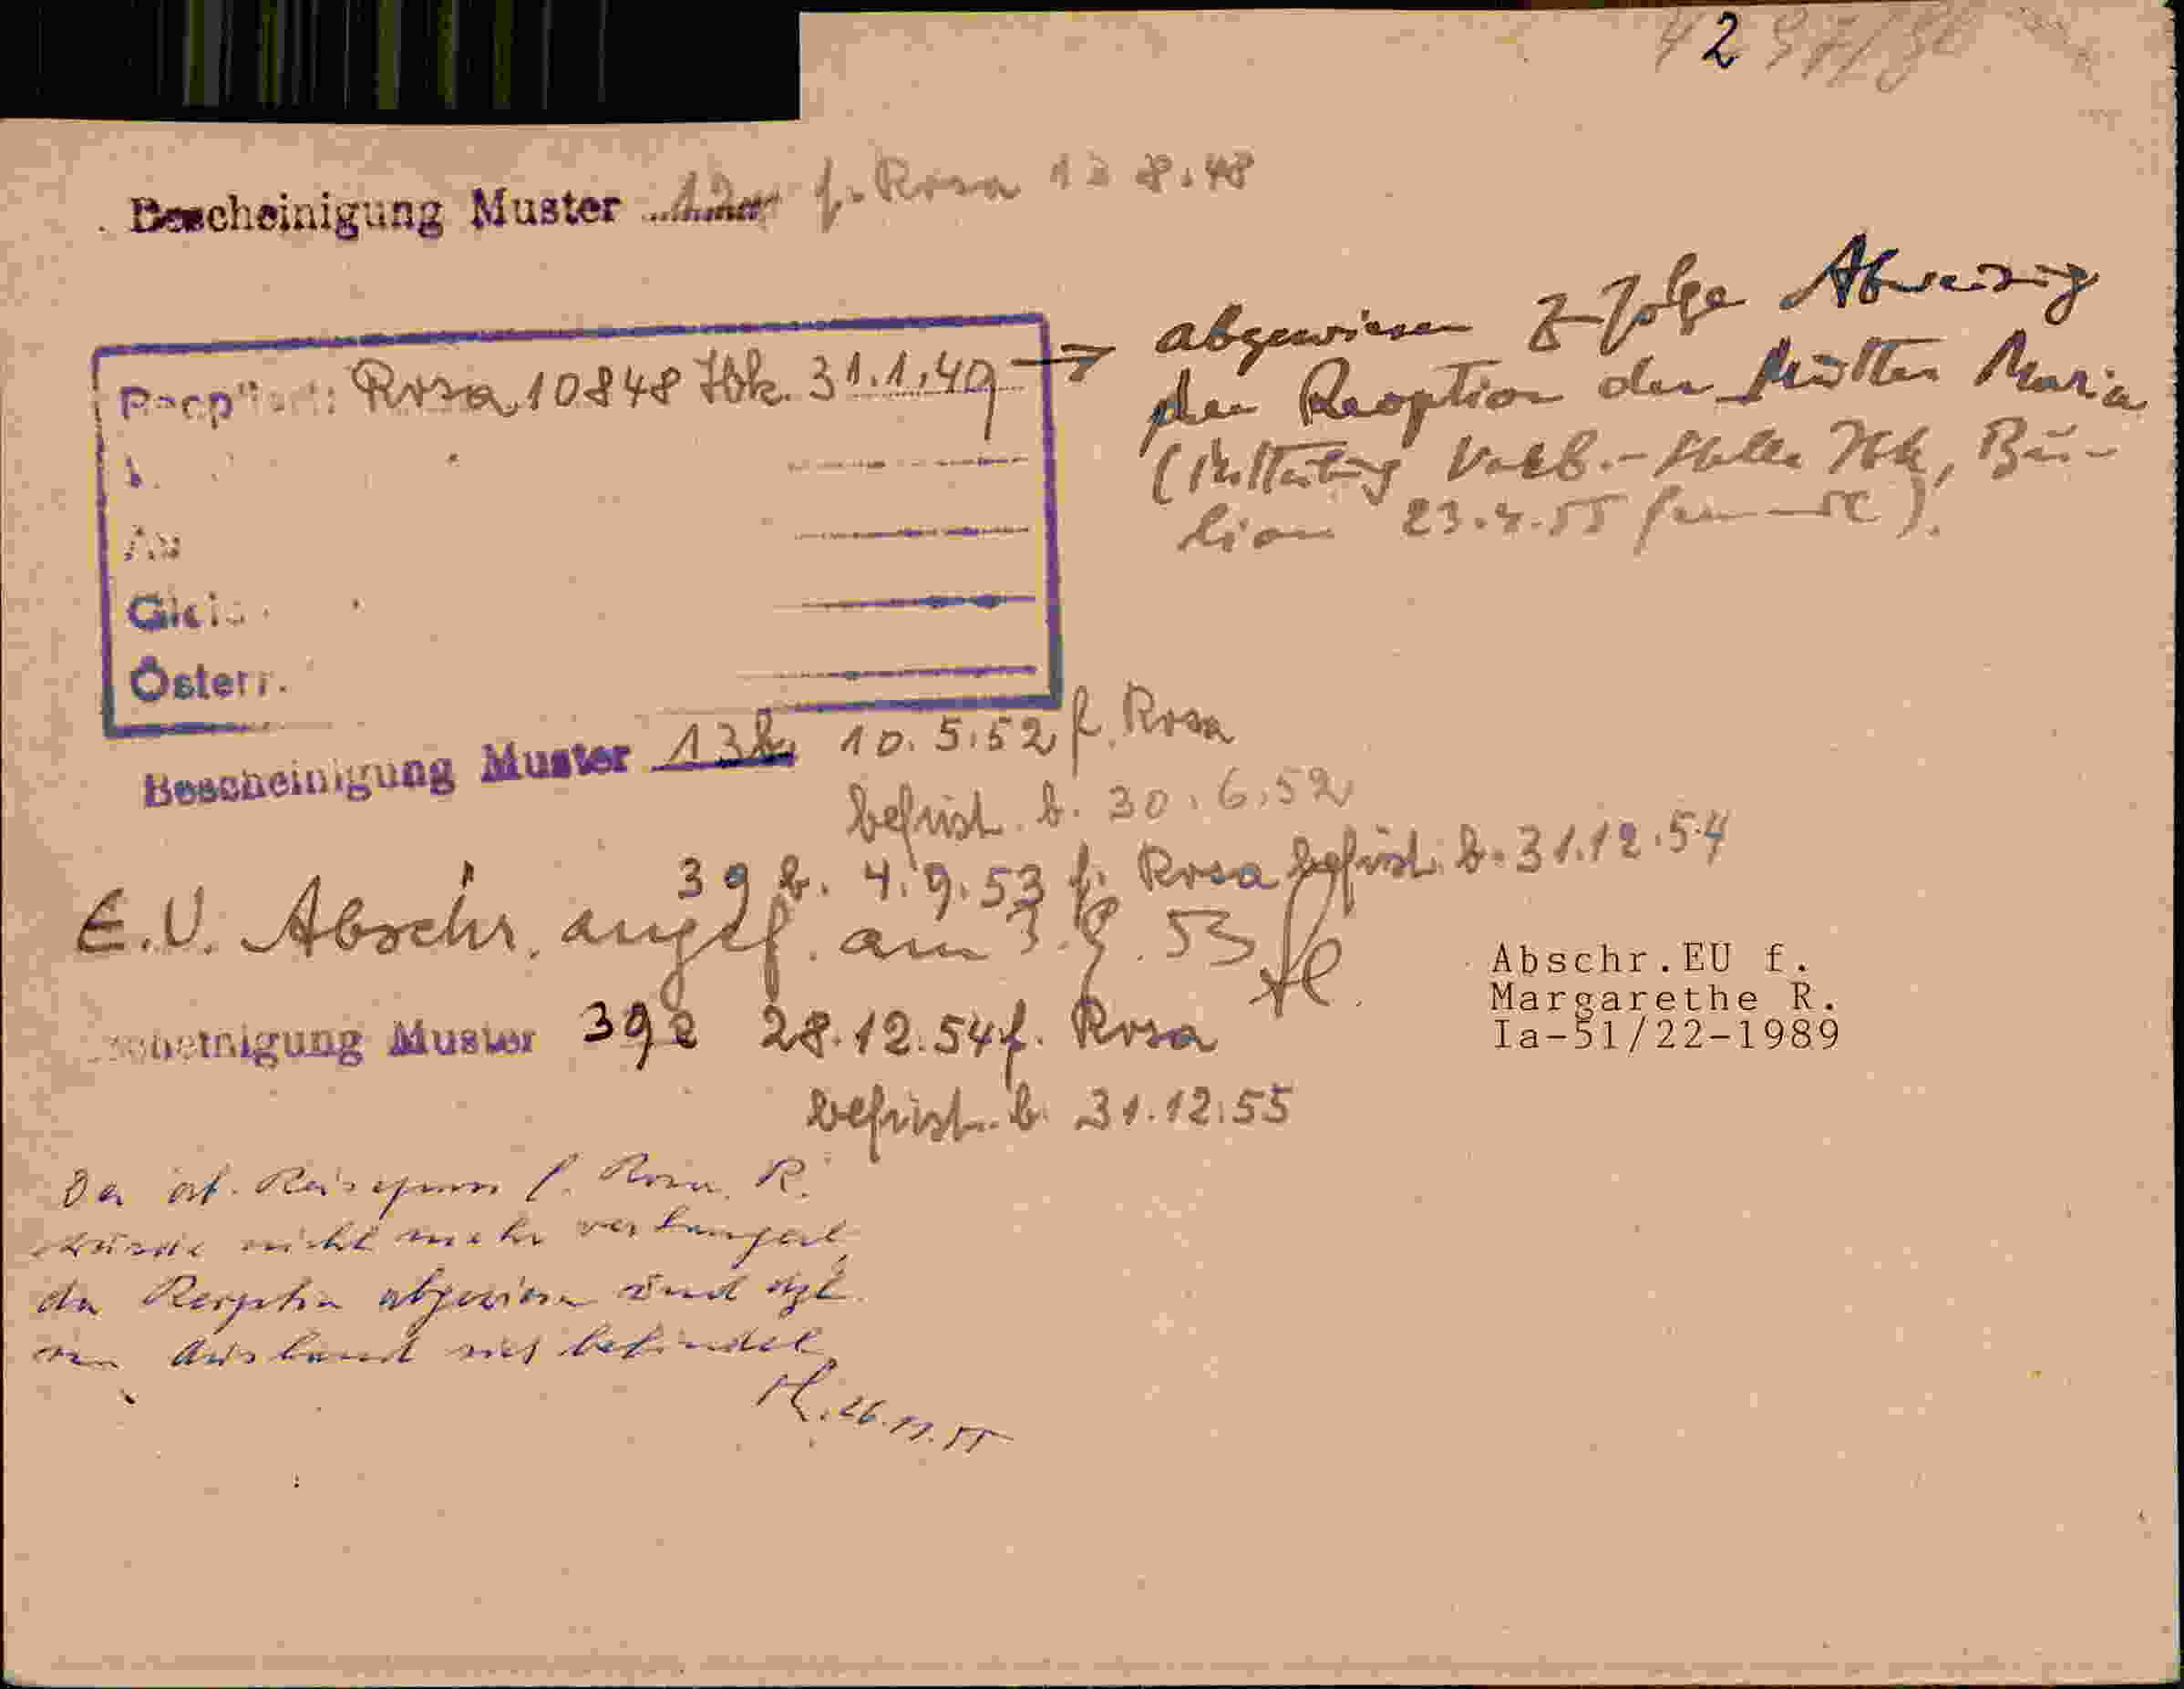 2
Bescheinigung Muster f. Rosa 8.48
Rosa 10848 Ibk. 31.1.49 → abgewiesen zfolge Abweisung
der Reoption der Mutter Maria
23.4.55
Österr.
Bescheinigung Muster 13b 10.5.52 f. Rosa
befrist. b. 30.6.52
39 b. 4.9.53 f. Rosa befrist. b. 31.12.54
E.U. Abschr. angef. am 3.9.53
Abschr.EU f.
Margarethe R.
Ia-51/22-1989
Muster 39e 28.12.54 f. Rosa
befrist. b. 31.12.55
Der öst. Reisepass f. Rosa R.
wurde nicht mehr verlängert,
da abgewiesen und
im Ausland sich befindet
26.11.55